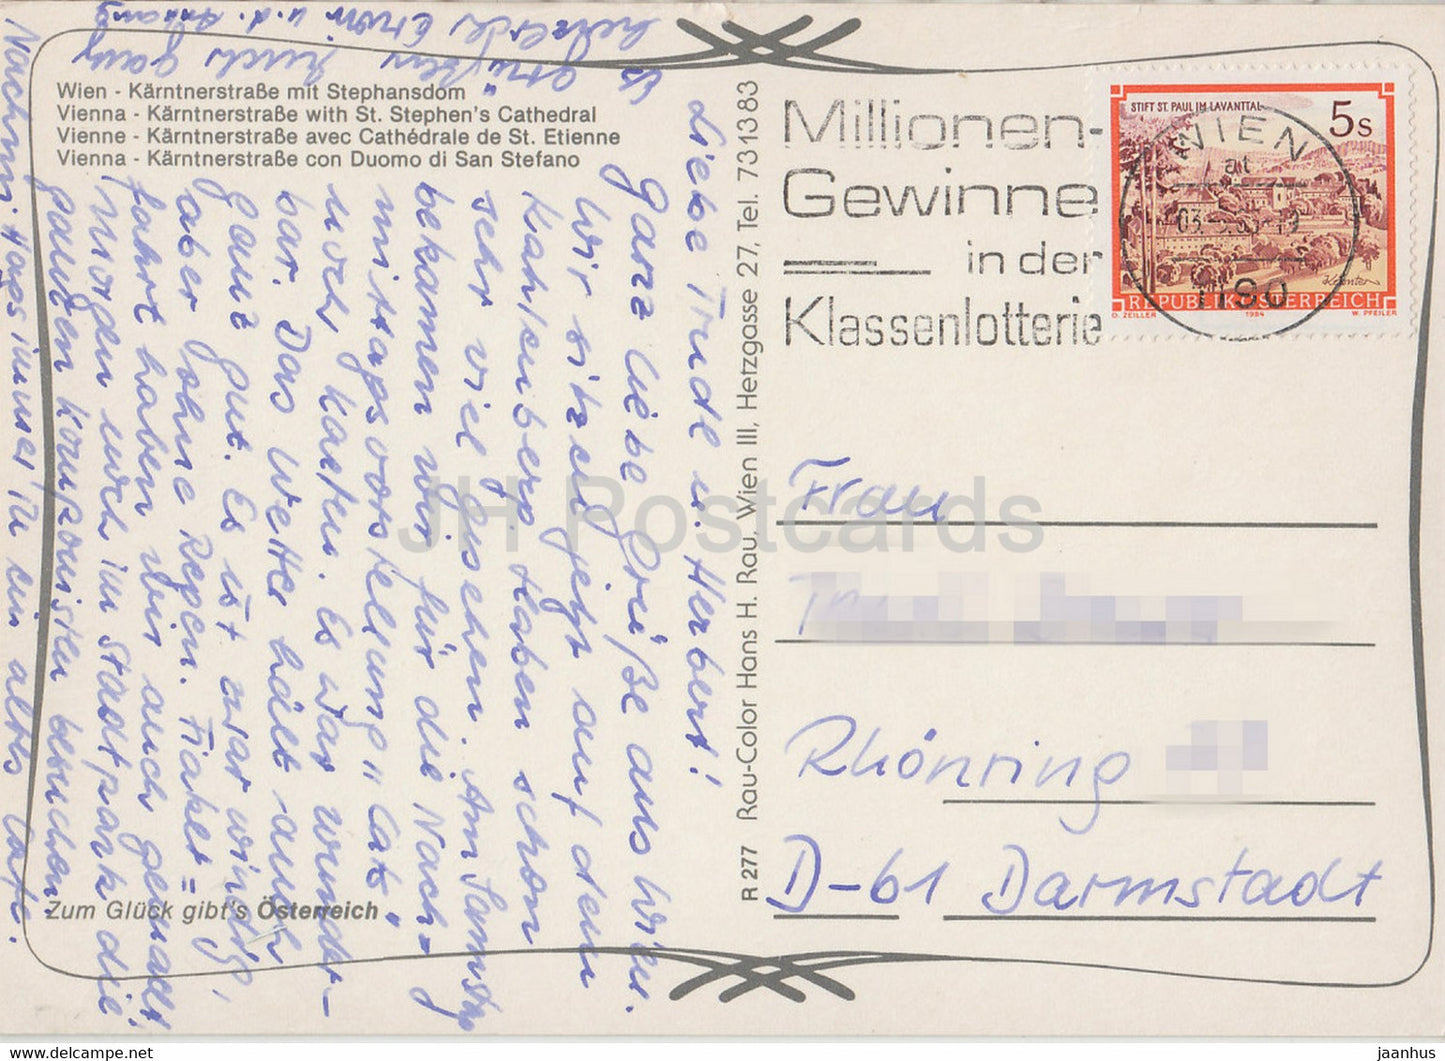 Wien - Kärntnerstraße mit Stephansdom
Vienna - Kärntnerstraße with St. Stephen's Cathedral
Vienne - Kärntnerstraße avec Cathédrale de St. Etienne
Vienna - Kärntnerstraße con Duomo di San Stefano
Liebe Trudl u. Herbert!
Ganz liebe Grüße aus Wien.
Wir sitzen jetzt auf dem
Kahlenberg. Haben schon
sehr viel gesehen. Am Samstag
bekamen wir für die Nach=
mittagsvorstellung "Cats"
noch Karten. Es war wunder-
bar. Das Wetter hält auch
ganz gut. Es ist zwar windig,
aber ohne Regen. Fiaker=
fahrt haben wir auch gemacht
Morgen noch im Stadtpark die
ganzen Komponisten besuchen
Nachmittags immer in ein altes Cafe.
Es grüßen Euch ganz
herzlich Erwin u.
Zum Glück gibt's Österreich
R 277 Rau-Color Hans H. Rau, Wien III, Hetzgasse 27, Tel. 731383
Millionen-
Gewinne
in der
Klassenlotterie
STIFT ST. PAUL IM LAVANTTAL
5s
REPUBLIK ÖSTERREICH
O. ZEILLER 1984 W. PFEILER
WIEN
1190
Frau
Rhönring
D-61 Darmstadt
JH Postcards
www.delcampe.net
jaanhus